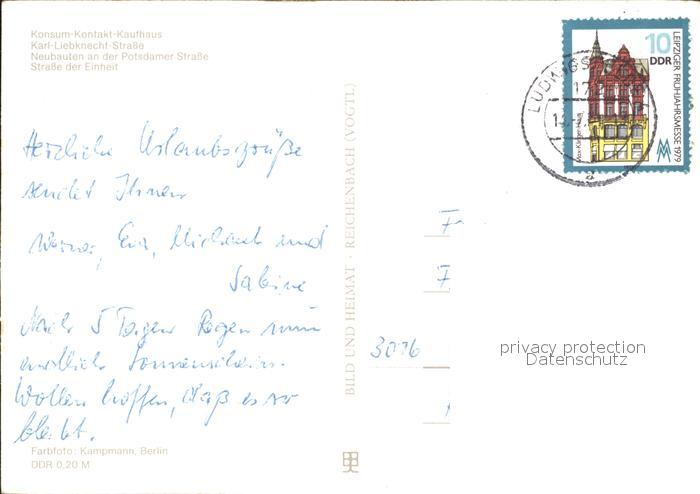 Konsum-Kontakt-Kaufhaus
Karl-Liebknecht-Straße
Neubauten an der Potsdamer Straße
Straße der Einheit
Herzliche Urlaubsgrüße
sendet Ihnen
Werner, Eva, Michael und
Sabine
Nach 5 Tagen Regen nun
endlich Sonnenschein.
Wollen hoffen, daß es so
bleibt.
Farbfoto: Kampmann, Berlin
DDR 0,20 M
BILD UND HEIMAT · REICHENBACH (VOGTL)
10
DDR
LEIPZIGER FRÜHJAHRSMESSE 1979
LUDWIGS
a
3016
privacy protection
Datenschutz